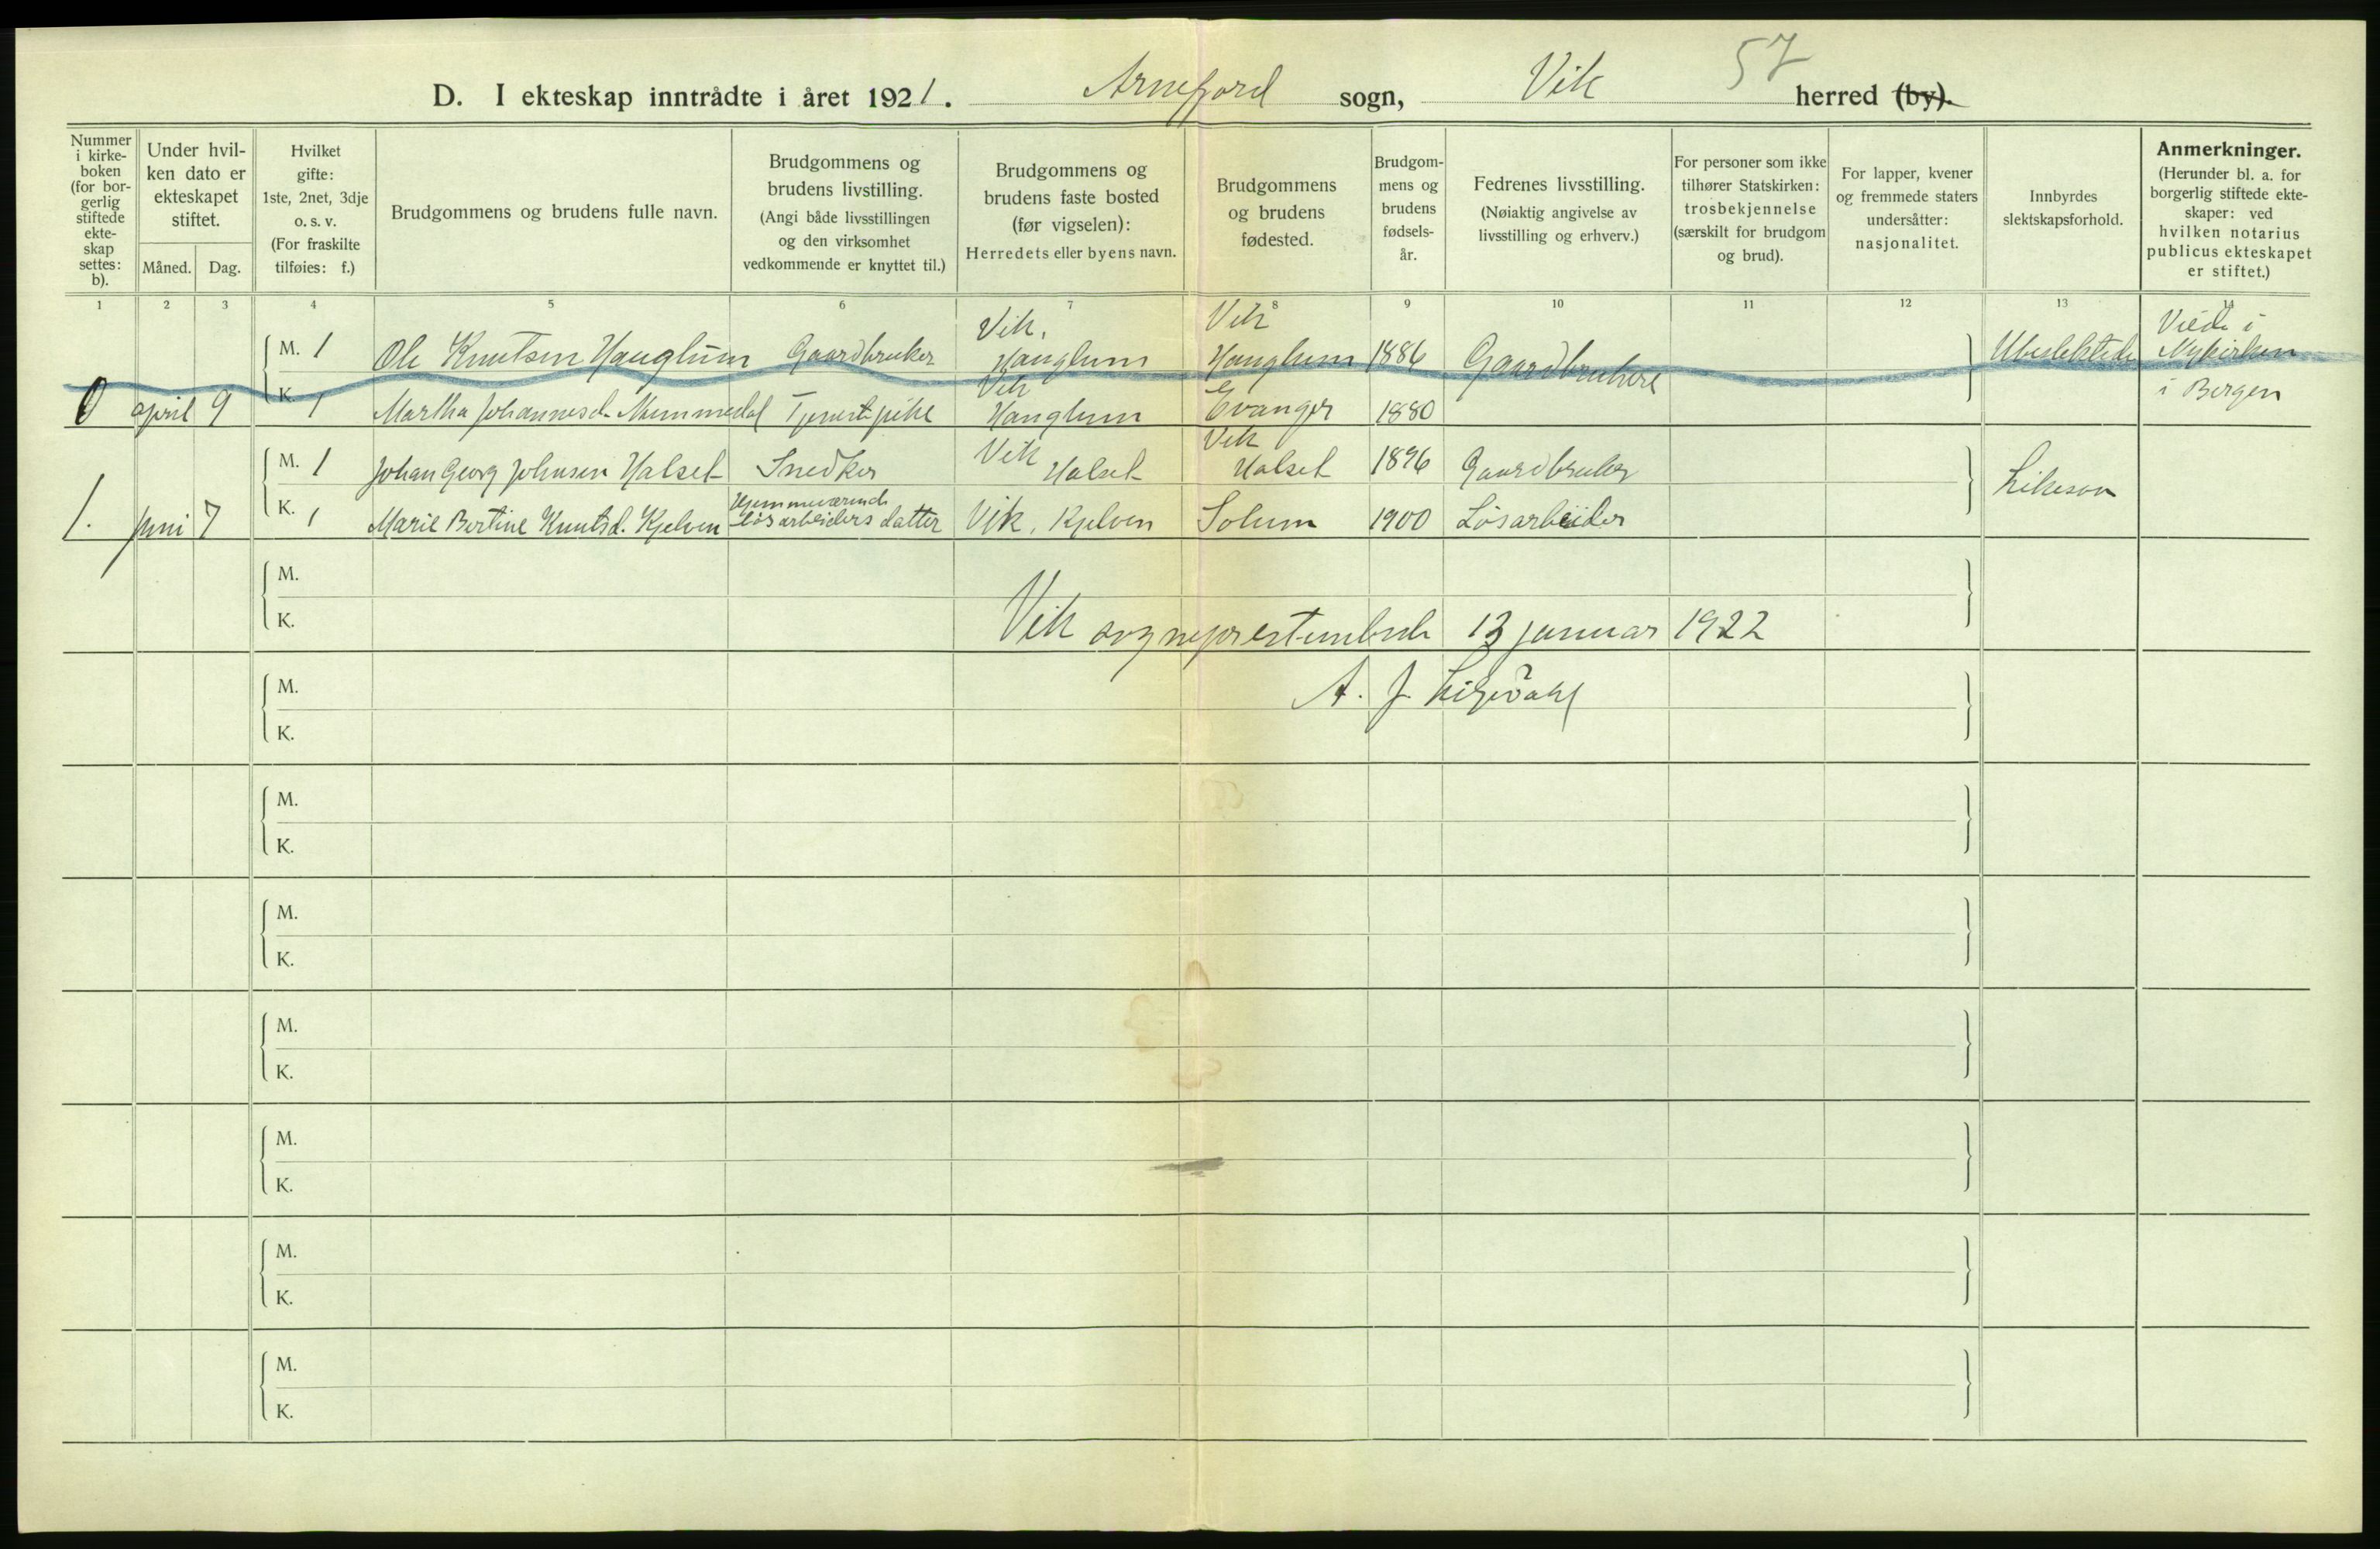 57
D. I ekteskap inntrådte i året 1921. Arnefjord sogn, Vik herred (by).
Nummer i kirke- boken (for bor- gerlig stiftede ekte- skap settes: b).
Under hvil- ken dato er ekteskapet stiftet.
Måned. Dag.
Hvilket gifte: 1ste, 2net, 3dje o. s. v. (For fraskilte tilføies: f.)
Brudgommens og brudens fulle navn.
Brudgommens og brudens livstilling. (Angi både livsstillingen og den virksomhet vedkommende er knyttet til.)
Brudgommens og brudens faste bosted (før vigselen): Herredets eller byens navn.
Brudgommens og brudens fødested.
Brudgom- mens og brudens fødsels- år.
Fedrenes livsstilling. (Nøiaktig angivelse av livsstilling og erhverv.)
For personer som ikke tilhører Statskirken: trosbekjennelse (særskilt for brudgom og brud).
For lapper, kvener og fremmede staters undersåtter: nasjonalitet.
Innbyrdes slektskapsforhold.
Anmerkninger. (Herunder bl. a. for borgerlig stiftede ekte- skaper: ved hvilken notarius publicus ekteskapet er stiftet.)
1 2 3 4 5 6 7 8 9 10 11 12 13 14
M. 1 Ole Knutsen Hauglum Gaardbruker Vik. Hauglum Vik Hauglum 1886 Gaardbrukere Ubeslektede Viede i Nykirken
0 april 9 K. 1 Martha Johannesd. Mummedal Tjenestepike Vik Hauglum Evanger 1880 i Bergen
M. 1 Johan Georg Johnsen Halset Snedker Vik Halset Vik Halset 1896 Gaardbruker
1. juni 7 K. 1 Marie Bertine Knutsd. Kjelven Hjemmeværende løsarbeiders datter Vik, Kjelven Solum 1900 Løsarbeider
M.
K. Vik sogneprestembede 13 januar 1922
M. A. J.
K.
M.
K.
M.
K.
M.
K.
M.
K.
M.
K.
M.
K.